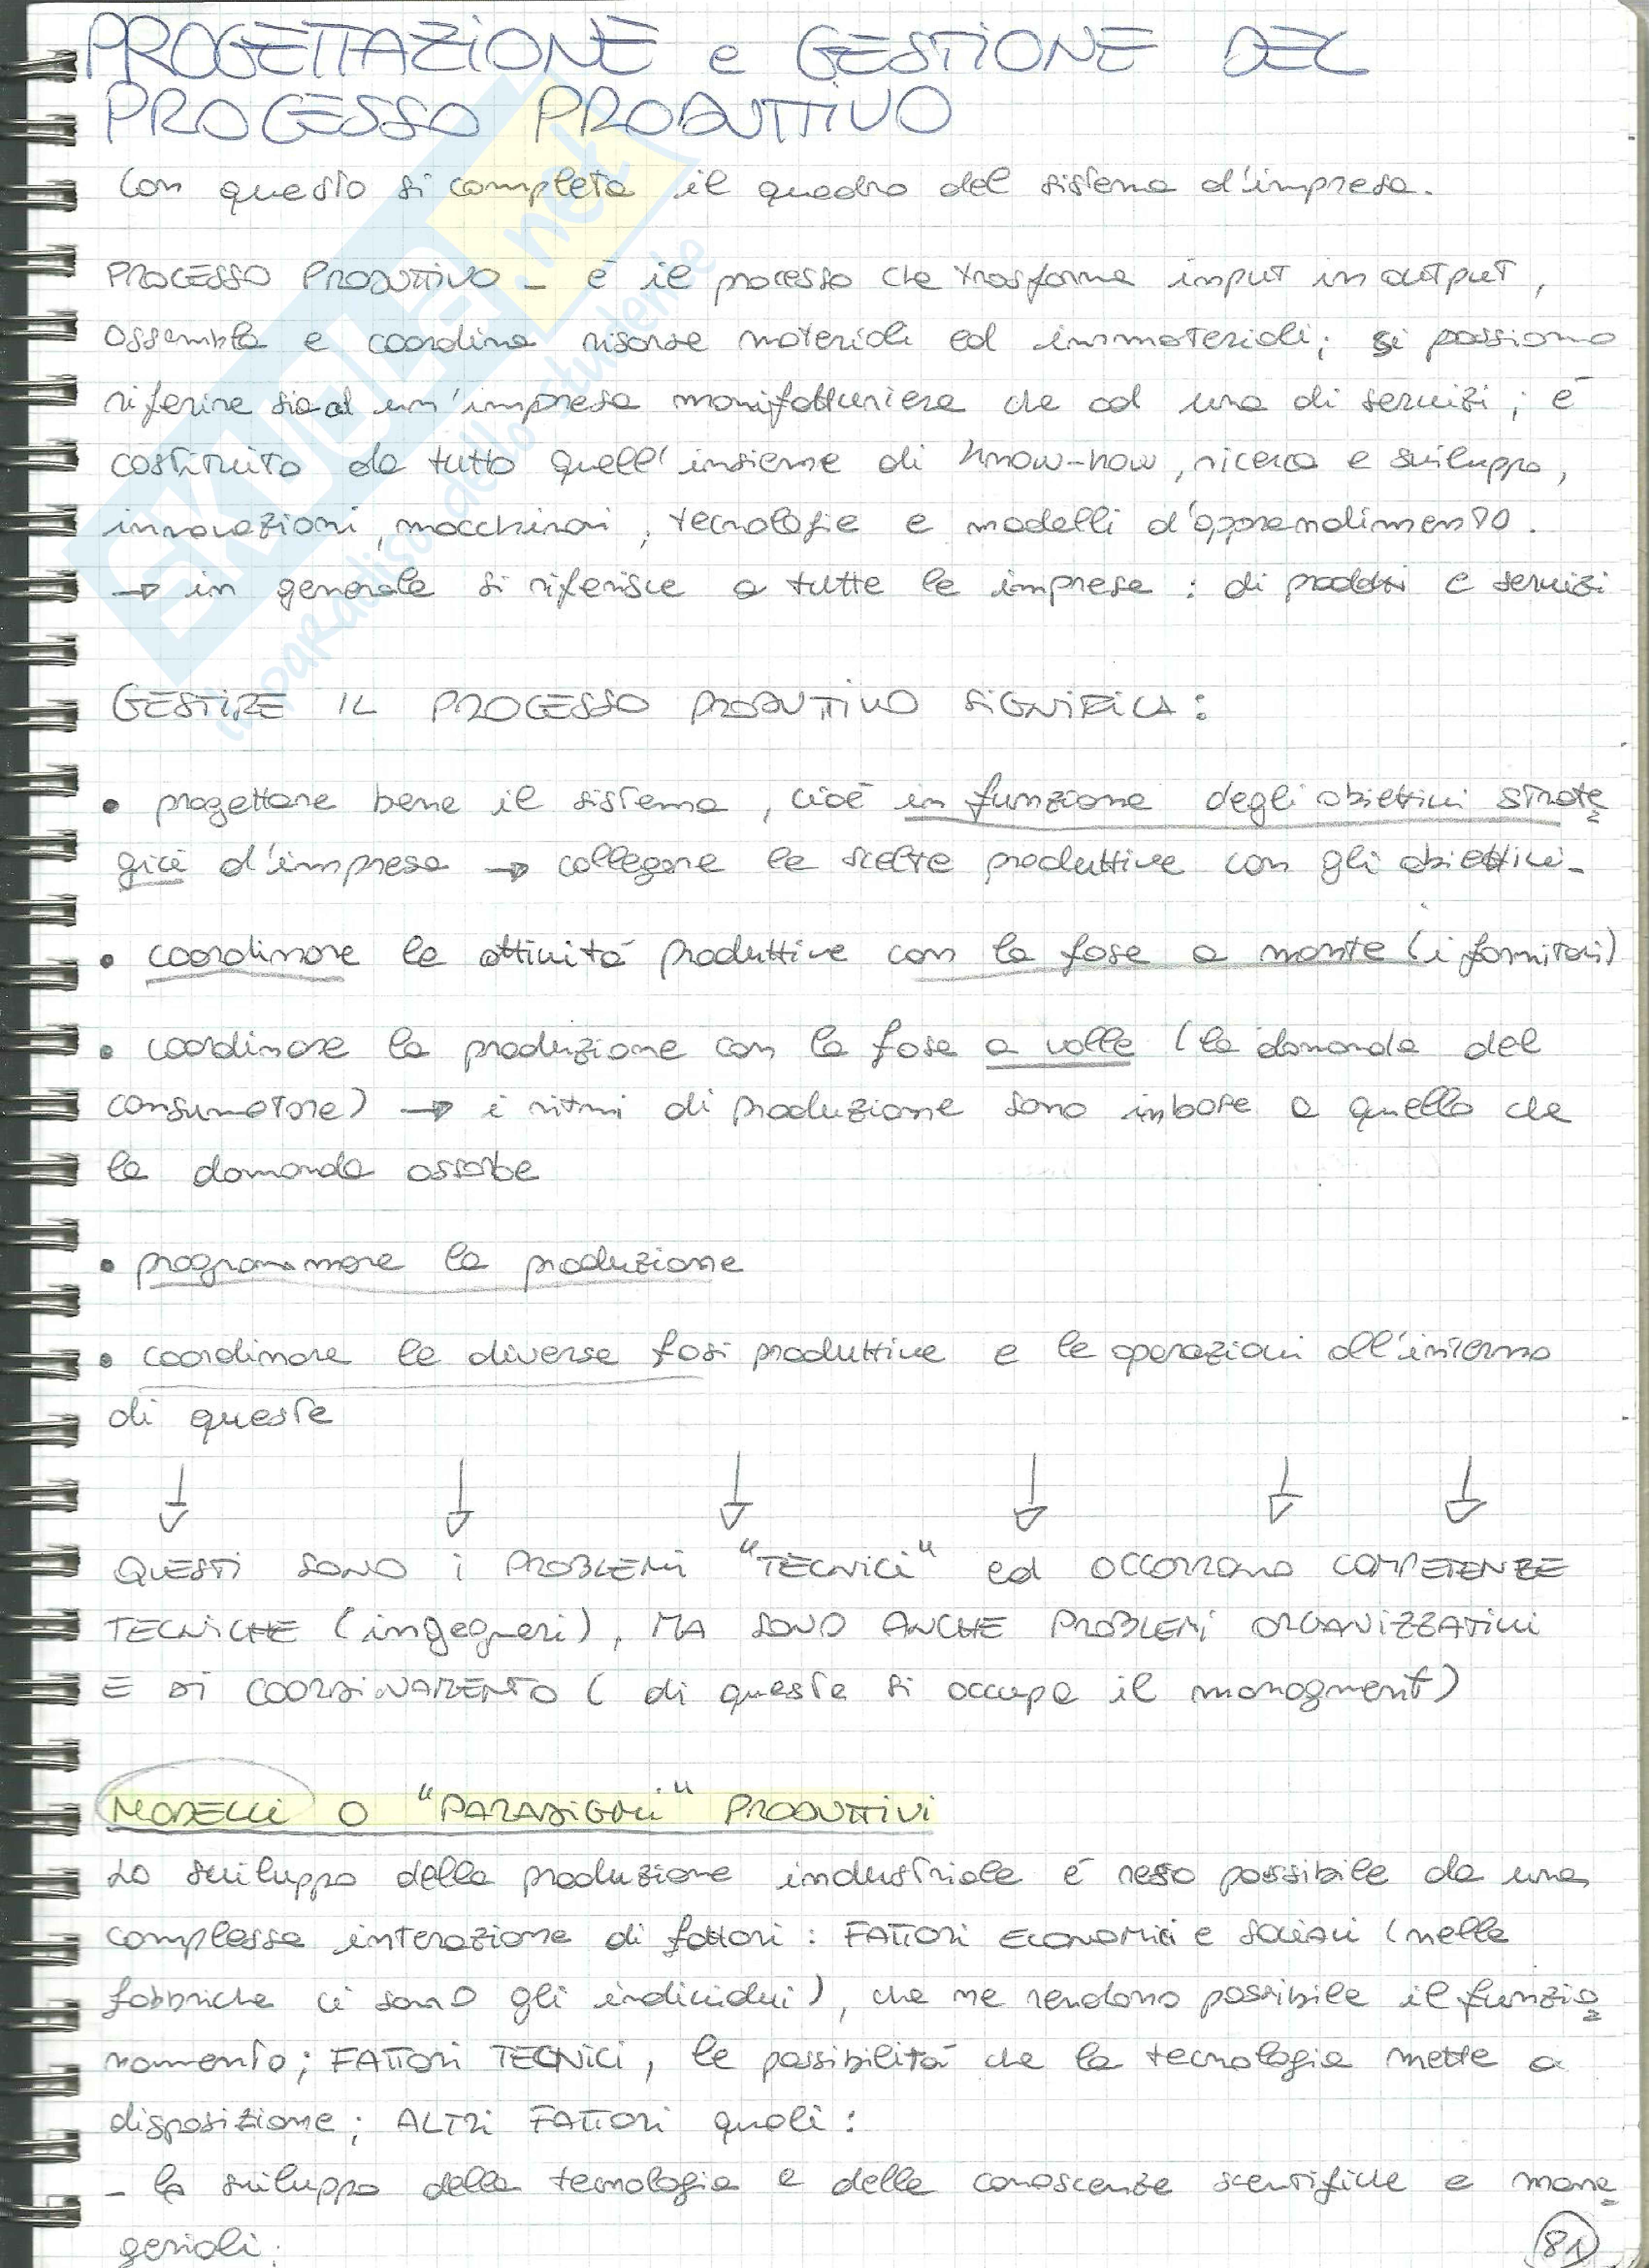 PROGETTAZIONE e GESTIONE DEL
PROCESSO PRODUTTIVO
Con questo si completa il quadro del sistema d'impresa.
PROCESSO PRODUTTIVO - è il processo che trasforma input in output,
assembla e coordina risorse materiali ed immateriali; si possiamo
riferire sia ad un'impresa manifatturiera che ad una di servizi; è
costituito da tutto quell'insieme di know-how, ricerca e sviluppo,
innovazioni, macchinari, tecnologie e modelli d'apprendimento.
→ in generale si riferisce a tutte le imprese: di prodotti e servizi
GESTIRE IL PROCESSO PRODUTTIVO SIGNIFICA:
• progettare bene il sistema, cioè in funzione degli obiettivi strate
gici d'impresa → collegare le scelte produttive con gli obiettivi.
• coordinare le attività produttive con la fase a monte (i fornitori)
• coordinare la produzione con la fase a valle (la domanda del
consumatore) → i ritmi di produzione sono in base a quello che
la domanda assorbe
• programmare la produzione
• coordinare le diverse fasi produttive e le operazioni all'interno
di queste
QUESTI SONO I PROBLEMI "TECNICI" ed OCCORRONO COMPETENZE
TECNICHE (ingegneri), MA SONO ANCHE PROBLEMI ORGANIZZATIVI
E DI COORDINAMENTO (di queste si occupa il managment)
MODELLI O "PARADIGMI" PRODUTTIVI
Lo sviluppo della produzione industriale è reso possibile da una
complessa interazione di fattori: FATTORI ECONOMICI e SOCIALI (nelle
fabbriche ci sono gli individui), che ne rendono possibile il funzio
namento; FATTORI TECNICI, le possibilità che la tecnologia mette a
disposizione; ALTRI FATTORI quali:
- lo sviluppo della tecnologia e delle conoscenze scentifiche e mana
geriali;
81
SKUOLA.net
il paradiso dello studente